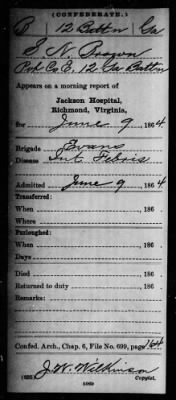 (CONFEDERATE.)
B 12 Battn Ga
S. N. Brown
Pvt Co E, 12 Ga Battn
Appears on a morning report of
Jackson Hospital,
Richmond, Virginia,
for June 9, 1864.
Brigade Evans
Disease Int. Febris
Admitted June 9, 1864
Transferred:
When , 186 .
Where
Furloughed:
When , 186 .
Days
Died , 186 .
Returned to duty , 186 .
Remarks:
Confed. Arch., Chap. 6, File No. 699, page 164
J. W. Wilkinson
Copyist.